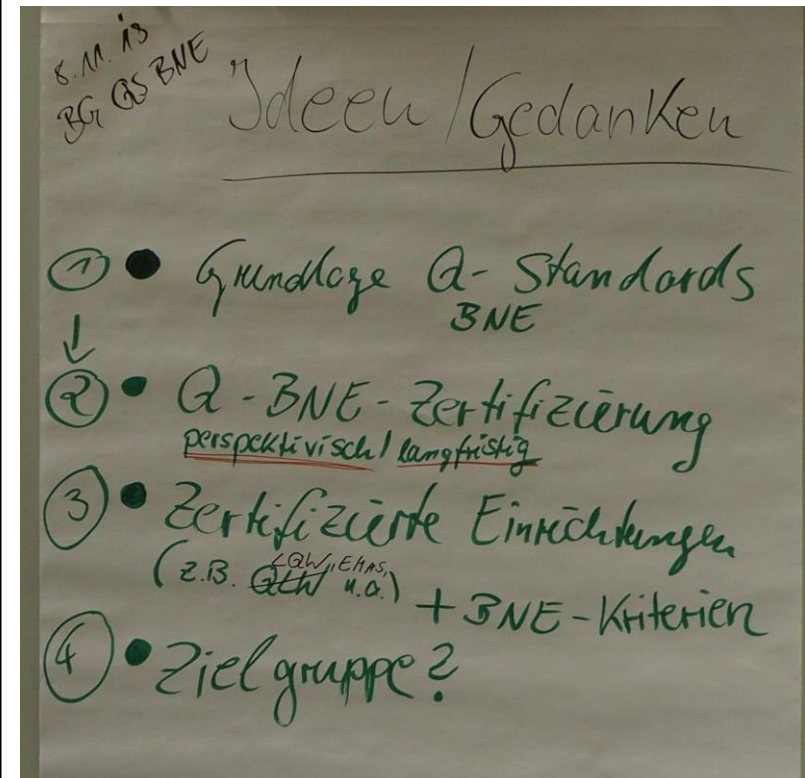 8.11.13
BG QS BNE
Ideen/Gedanken
① ● Grundlage Q-Standards
BNE
↓
② ● Q-BNE-Zertifizierung
perspektivisch/langfristig
③ ● Zertifizierte Einrichtungen
(z.B. LQW, EMAS, u.a.)
+ BNE-Kriterien
④ ● Zielgruppe?